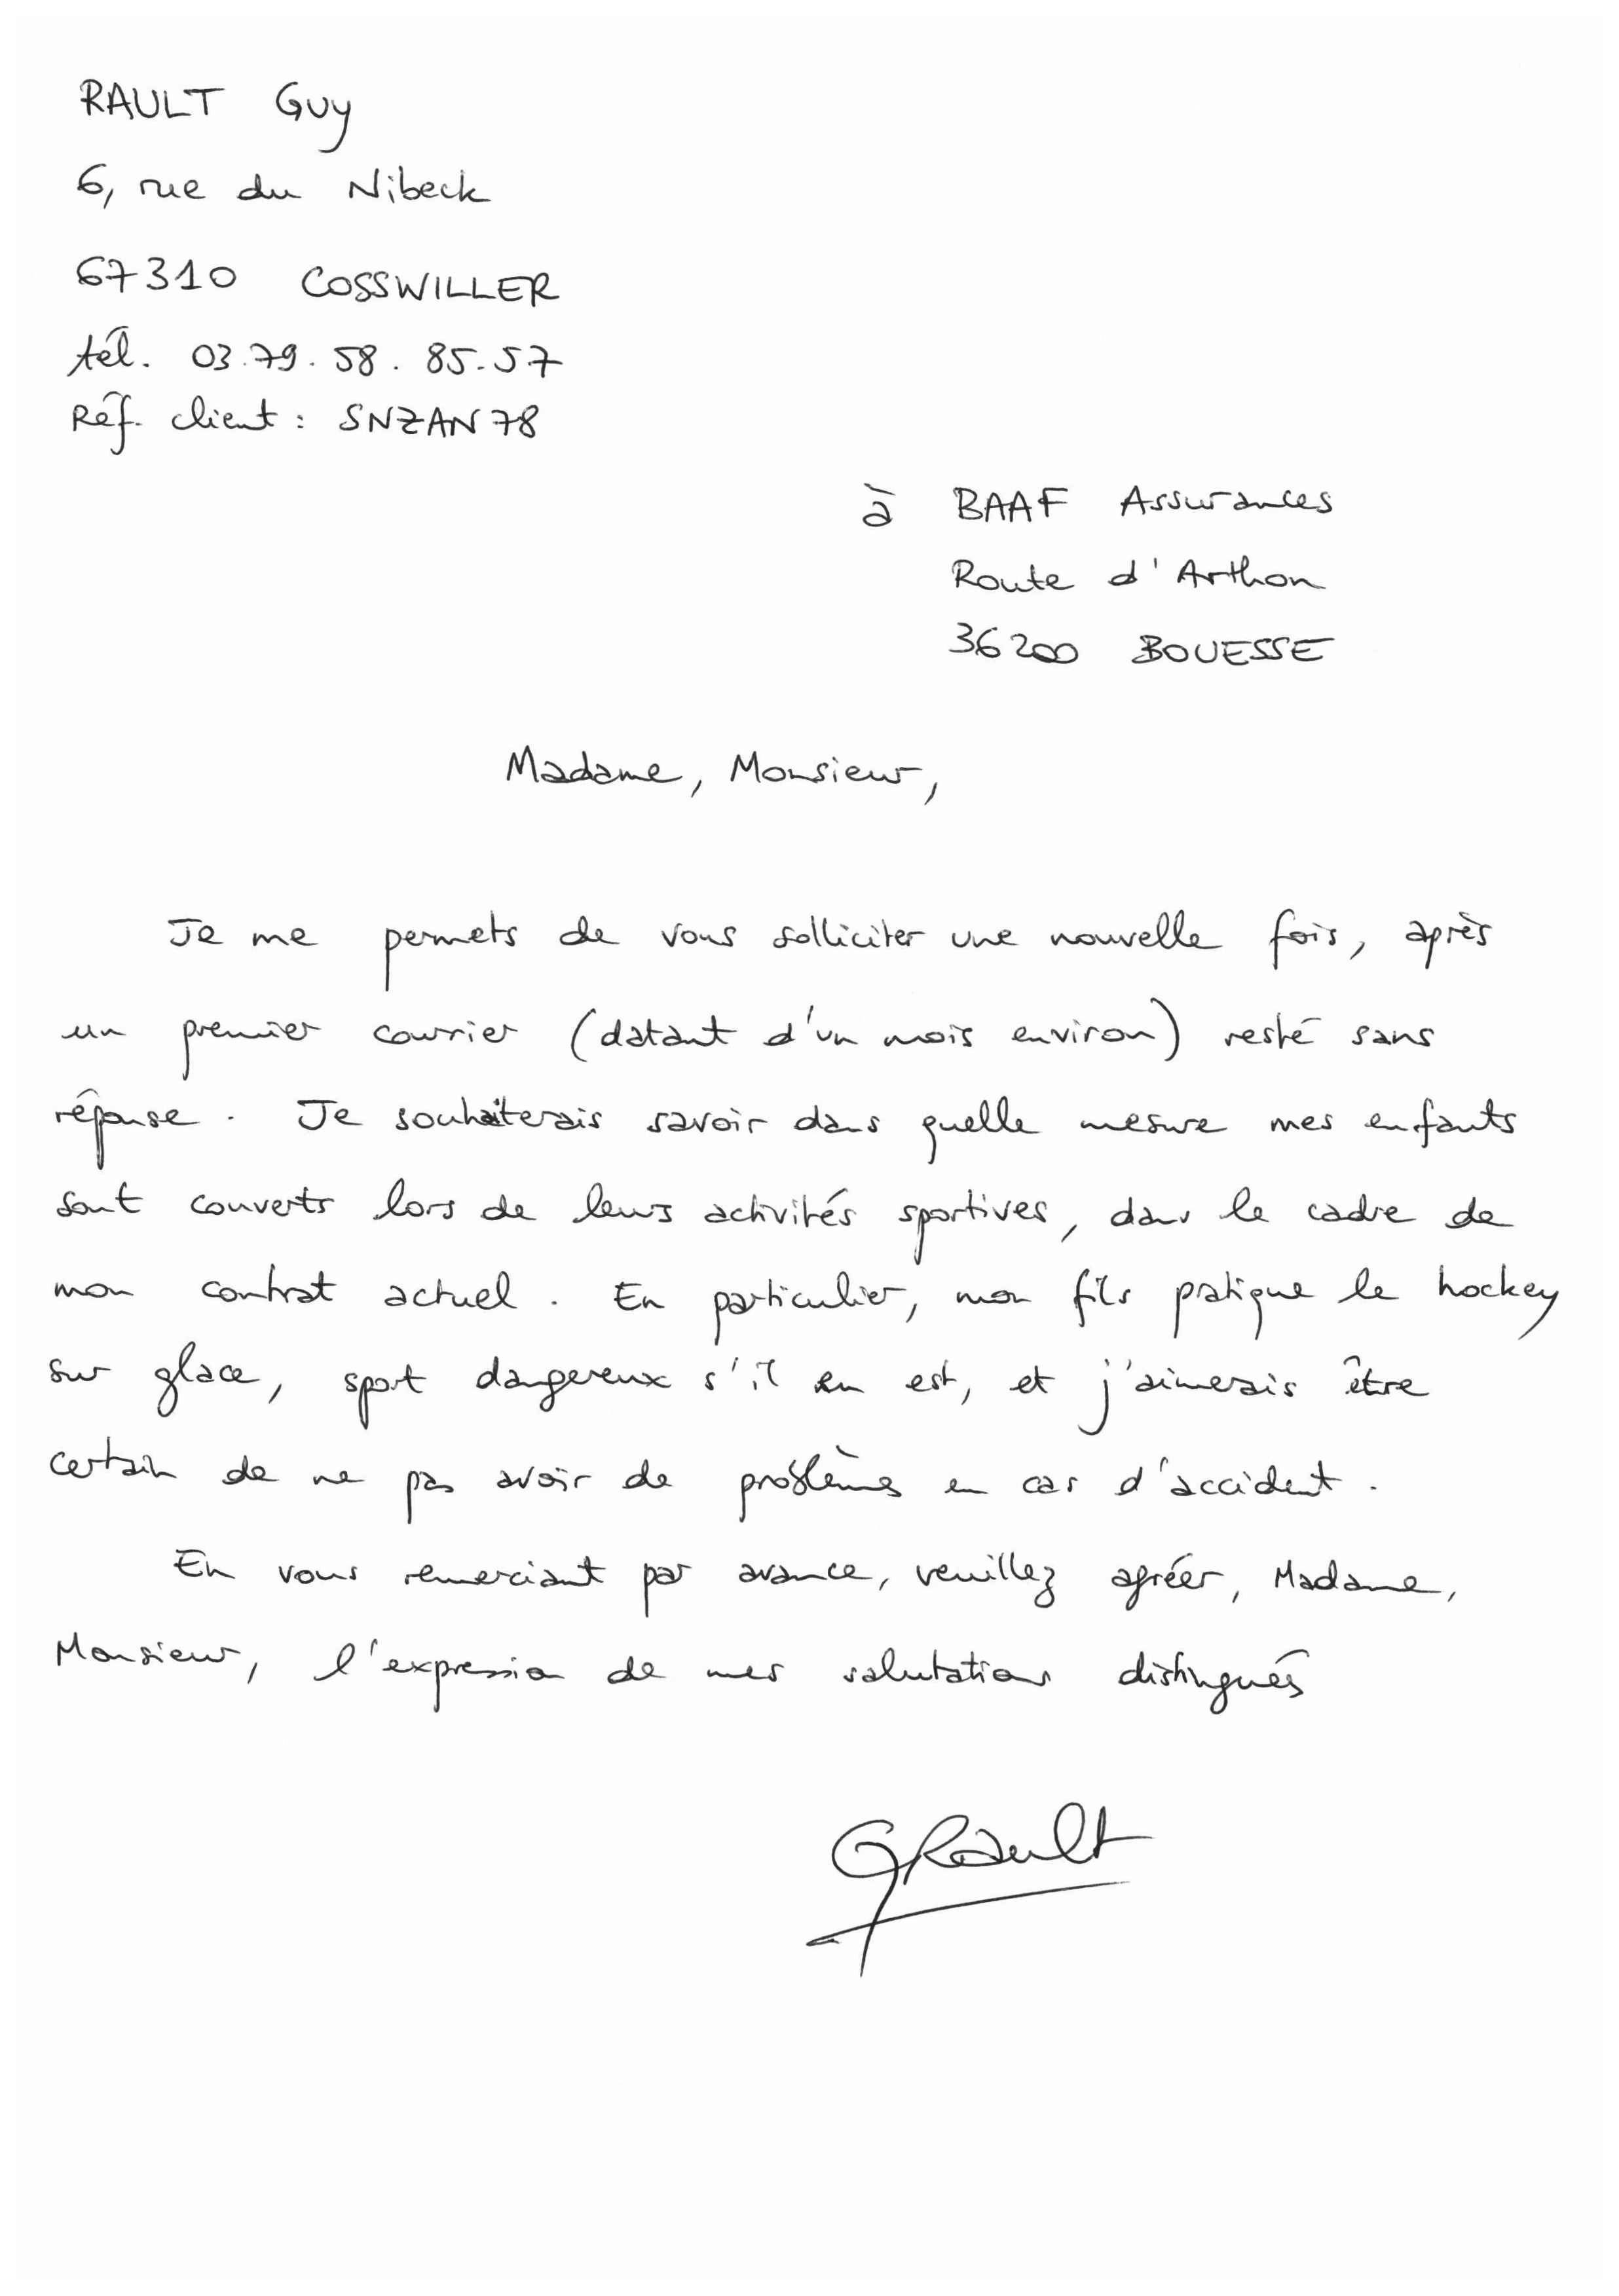 RAULT Guy
6, rue du Nibeck
67310 COSSWILLER
tél. 03.79.58.85.57
Réf. client : SNZAN78
à BAAF Assurances
Route d'Arthon
36200 BOUESSE
Madame, Monsieur,
Je me permets de vous solliciter une nouvelle fois, après
un premier courrier (datant d'un mois environ) resté sans
réponse. Je souhaiterais savoir dans quelle mesure mes enfants
sont couverts lors de leurs activités sportives, dans le cadre de
mon contrat actuel. En particulier, mon fils pratique le hockey
sur glace, sport dangereux s'il en est, et j'aimerais être
certain de ne pas avoir de problèmes en cas d'accident.
En vous remerciant par avance, veuillez agréer, Madame,
Monsieur, l'expression de mes salutations distingués
GRault